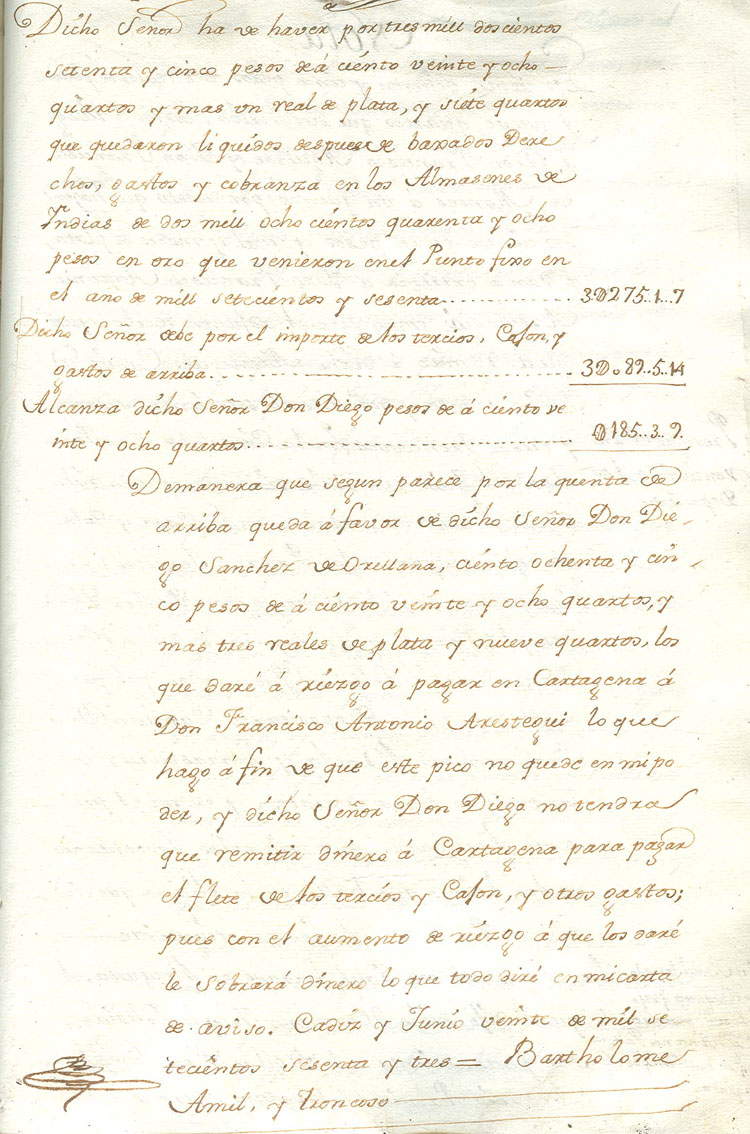 Dicho Señor ha de haver por tres mill doscientos
setenta y cinco pesos deá ciento veinte y ocho
quartos y mas un real de plata, y siete quartos
que quedaron liquidos despues de baxados Dere
chos, gastos y cobranza en los Almasenes de
Indias de dos mill ocho cientos quarenta y ocho
pesos en oro que venieron enel Punto fixo en
el ano de mill setecientos y sesenta 3D275..1..7
Dicho Señor debe por el importe de los tercios, Cason, y
gastos de arriba 3D.89..5..14
Alcanza dicho Señor Don Diego pesos de á ciento ve
inte y ocho quartos D185..3..9.
Demanera que segun parece por la quenta de
arriba queda á favor de dicho Señor Don Die-
go Sanchez de Orellana, ciento ochenta y cin
co pesos de á ciento veinte y ocho quartos, y
mas tres reales de plata y nueve quartos, los
que daré á riézgo á pagar en Cartagena á
Don Francisco Antonio Arestegui lo que
hago á fin de que este pico no quede en mi po
der, y dicho Señor Don Diego no tendra
que remitir dinero á Cartagena para pagar
el flete de los tercios y Cason, y otros gastos;
pues con el aumento de riézgo á que los daré
le sobrará dinero lo que todo diré en mi carta
de aviso. Cadiz y Junio veinte de mil se
tecientos sesenta y tres = Bartholome
Amil, y Troncoso